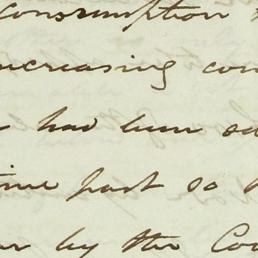 consumption
increasing con
had been
time past so
by the Coo